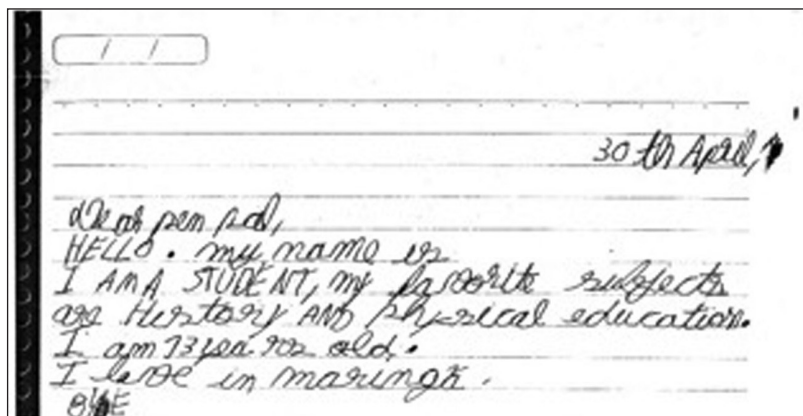 / /
30 th April,
Dear pen pal,
HELLO. my name is
I AM A STUDENT, my favorite subjects
are History AND Physical education.
I am 13 years old.
I leve in maringá.
BYE